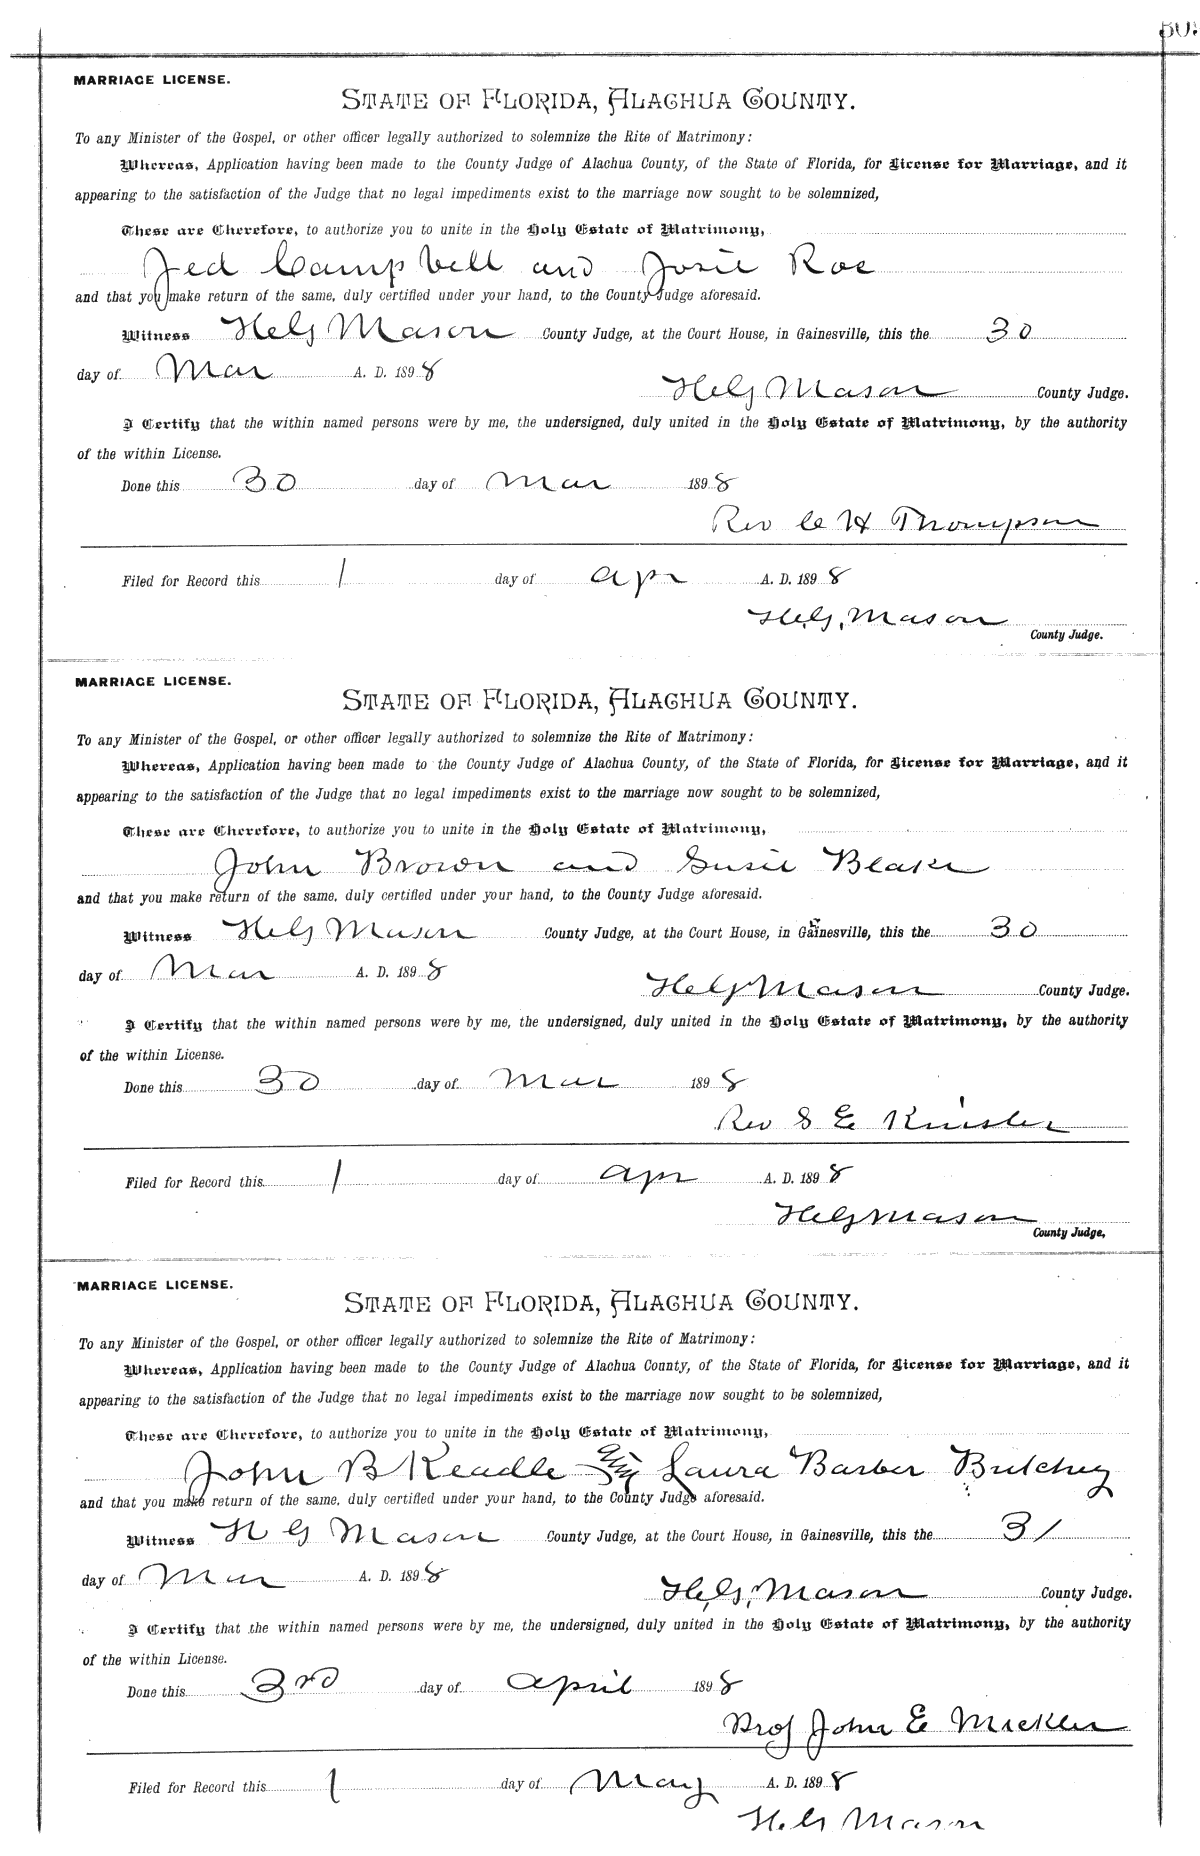 MARRIAGE LICENSE.
STATE OF FLORIDA, ALACHUA COUNTY.
To any Minister of the Gospel, or other officer legally authorized to solemnize the Rite of Matrimony:
Whereas, Application having been made to the County Judge of Alachua County, of the State of Florida, for License for Marriage, and it
appearing to the satisfaction of the Judge that no legal impediments exist to the marriage now sought to be solemnized,
These are Therefore, to authorize you to unite in the Holy Estate of Matrimony,
Jed Campbell and Josie Roe
and that you make return of the same, duly certified under your hand, to the County Judge aforesaid.
Witness H G Mason County Judge, at the Court House, in Gainesville, this the 30
day of Mar A. D. 1898
H G Mason County Judge.
I Certify that the within named persons were by me, the undersigned, duly united in the Holy Estate of Matrimony, by the authority
of the within License.
Done this 30 day of Mar 1898
Rev C H Thompson
Filed for Record this 1 day of Apr A. D. 1898
H. G. Mason
County Judge.
MARRIAGE LICENSE.
STATE OF FLORIDA, ALACHUA COUNTY.
To any Minister of the Gospel, or other officer legally authorized to solemnize the Rite of Matrimony:
Whereas, Application having been made to the County Judge of Alachua County, of the State of Florida, for License for Marriage, and it
appearing to the satisfaction of the Judge that no legal impediments exist to the marriage now sought to be solemnized,
These are Therefore, to authorize you to unite in the Holy Estate of Matrimony,
John Brown and Susie Blake
and that you make return of the same, duly certified under your hand, to the County Judge aforesaid.
Witness H G Mason County Judge, at the Court House, in Gainesville, this the 30
day of Mar A. D. 1898
H G Mason County Judge.
I Certify that the within named persons were by me, the undersigned, duly united in the Holy Estate of Matrimony, by the authority
of the within License.
Done this 30 day of Mar 1898
Rev S E Kinsler
Filed for Record this 1 day of Apr A. D. 1898
H G Mason
County Judge,
MARRIAGE LICENSE.
STATE OF FLORIDA, ALACHUA COUNTY.
To any Minister of the Gospel, or other officer legally authorized to solemnize the Rite of Matrimony:
Whereas, Application having been made to the County Judge of Alachua County, of the State of Florida, for License for Marriage, and it
appearing to the satisfaction of the Judge that no legal impediments exist to the marriage now sought to be solemnized,
These are Therefore, to authorize you to unite in the Holy Estate of Matrimony,
John B Keadle Laura Barber Butchey
and that you make return of the same, duly certified under your hand, to the County Judge aforesaid.
Witness H G Mason County Judge, at the Court House, in Gainesville, this the 31
day of Mar A. D. 1898
H. G. Mason County Judge.
I Certify that the within named persons were by me, the undersigned, duly united in the Holy Estate of Matrimony, by the authority
of the within License.
Done this 3rd day of April 1898
Prof John E Mickler
Filed for Record this 1 day of May A. D. 1898
H. G. Mason